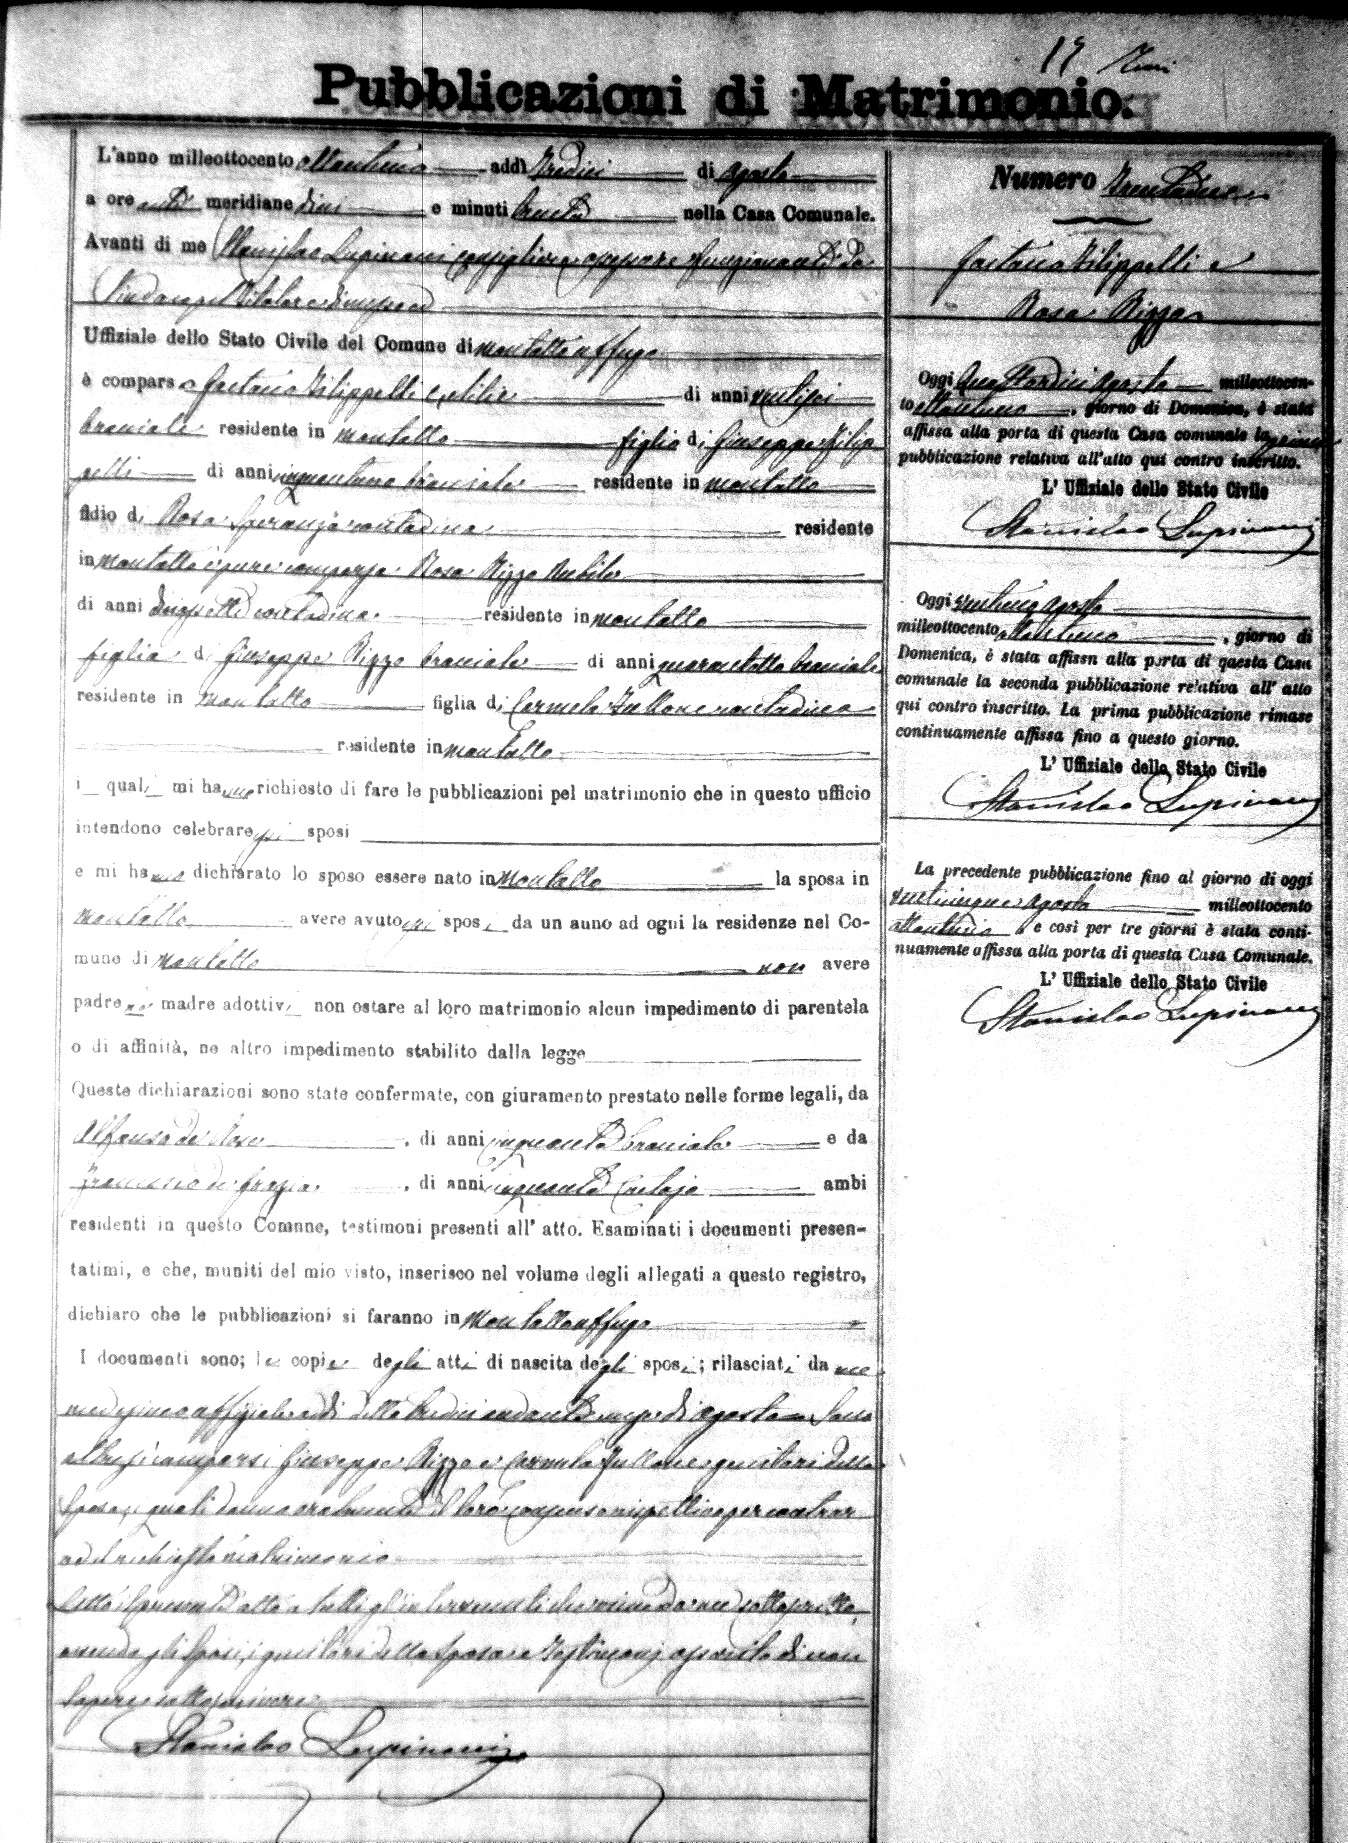 17
Pubblicazioni di Matrimonio.
L'anno milleottocento ottantuno addì tredici di agosto
a ore anti meridiane dieci e minuti trenta nella Casa Comunale.
Avanti di me Stanislao Lupinacci consigliere assessore funzionante da
Sindaco pel titolare dimesso
Uffiziale dello Stato Civile del Comune di montalto uffugo
è comparso Gaetano Filippelli celibe di anni ventisei
bracciale residente in montalto figlio di Giuseppe Filip
pelli di anni cinquantuno bracciale residente in montalto
fidio di Rosa Speranza contadina residente
in montalto è pure comparsa Rosa Rizzo nubile
di anni diciassette contadina residente in montalto
figlia di Giuseppe Rizzo bracciale di anni quarantotto bracciale
residente in montalto figlia di Carmela contadina
residente in montalto
i quali mi hanno richiesto di fare le pubblicazioni pel matrimonio che in questo ufficio
intendono celebrare essi sposi
e mi hanno dichiarato lo sposo essere nato in montalto la sposa in
montalto avere avuto essi sposi da un anno ad ogni la residenze nel Co-
mune di montalto non avere
padre nè madre adottivi non ostare al loro matrimonio alcun impedimento di parentela
o di affinità, ne altro impedimento stabilito dalla legge
Queste dichiarazioni sono state confermate, con giuramento prestato nelle forme legali, da
Alfonso de Rose, di anni cinquanta bracciale e da
Francesco de Grazia, di anni cinquanta ambi
residenti in questo Comune, testimoni presenti all' atto. Esaminati i documenti presen-
tatimi, e che, muniti del mio visto, inserisco nel volume degli allegati a questo registro,
dichiaro che le pubblicazioni si faranno in Montalto uffugo
I documenti sono; le copie degli atti di nascita degli sposi; rilasciati da me
medesimo uffiziale addì detto tredici andante mese di agosto Sono
altresì comparsi Giuseppe Rizzo e Carmela genitori della
Sposa, i quali danno oralmente il loro consenso rispettivo per contrar
ed il richiesto matrimonio
Letto il presente atto a tutti gl'intervenuti che viene da me sottoscritto,
avendo gli sposi, i genitori della sposa e testimoni asserito di non
sapere sottoscrivere
Stanislao Lupinacci
Numero trentadue
Gaetano Filippelli e
Rosa Rizzo
Oggi quattordici agosto milleottocen-
to ottantuno, giorno di Domenica, è stata
affissa alla porta di questa Casa comunale la prima
pubblicazione relativa all'atto qui contro inscritto.
L' Uffiziale dello Stato Civile
Stanislao Lupinacci
Oggi ventuno agosto
milleottocento ottantuno, giorno di
Domenica, è stata affissa alla porta di questa Casa
comunale la seconda pubblicazione relativa all' atto
qui contro inscritto. La prima pubblicazione rimase
continuamente affissa fino a questo giorno.
L' Uffiziale dello Stato Civile
Stanislao Lupinacci
La precedente pubblicazione fino al giorno di oggi
venticinque agosto milleottocento
ottantuno e così per tre giorni è stata conti-
nuamente affissa alla porta di questa Casa Comunale.
L' Uffiziale dello Stato Civile
Stanislao Lupinacci